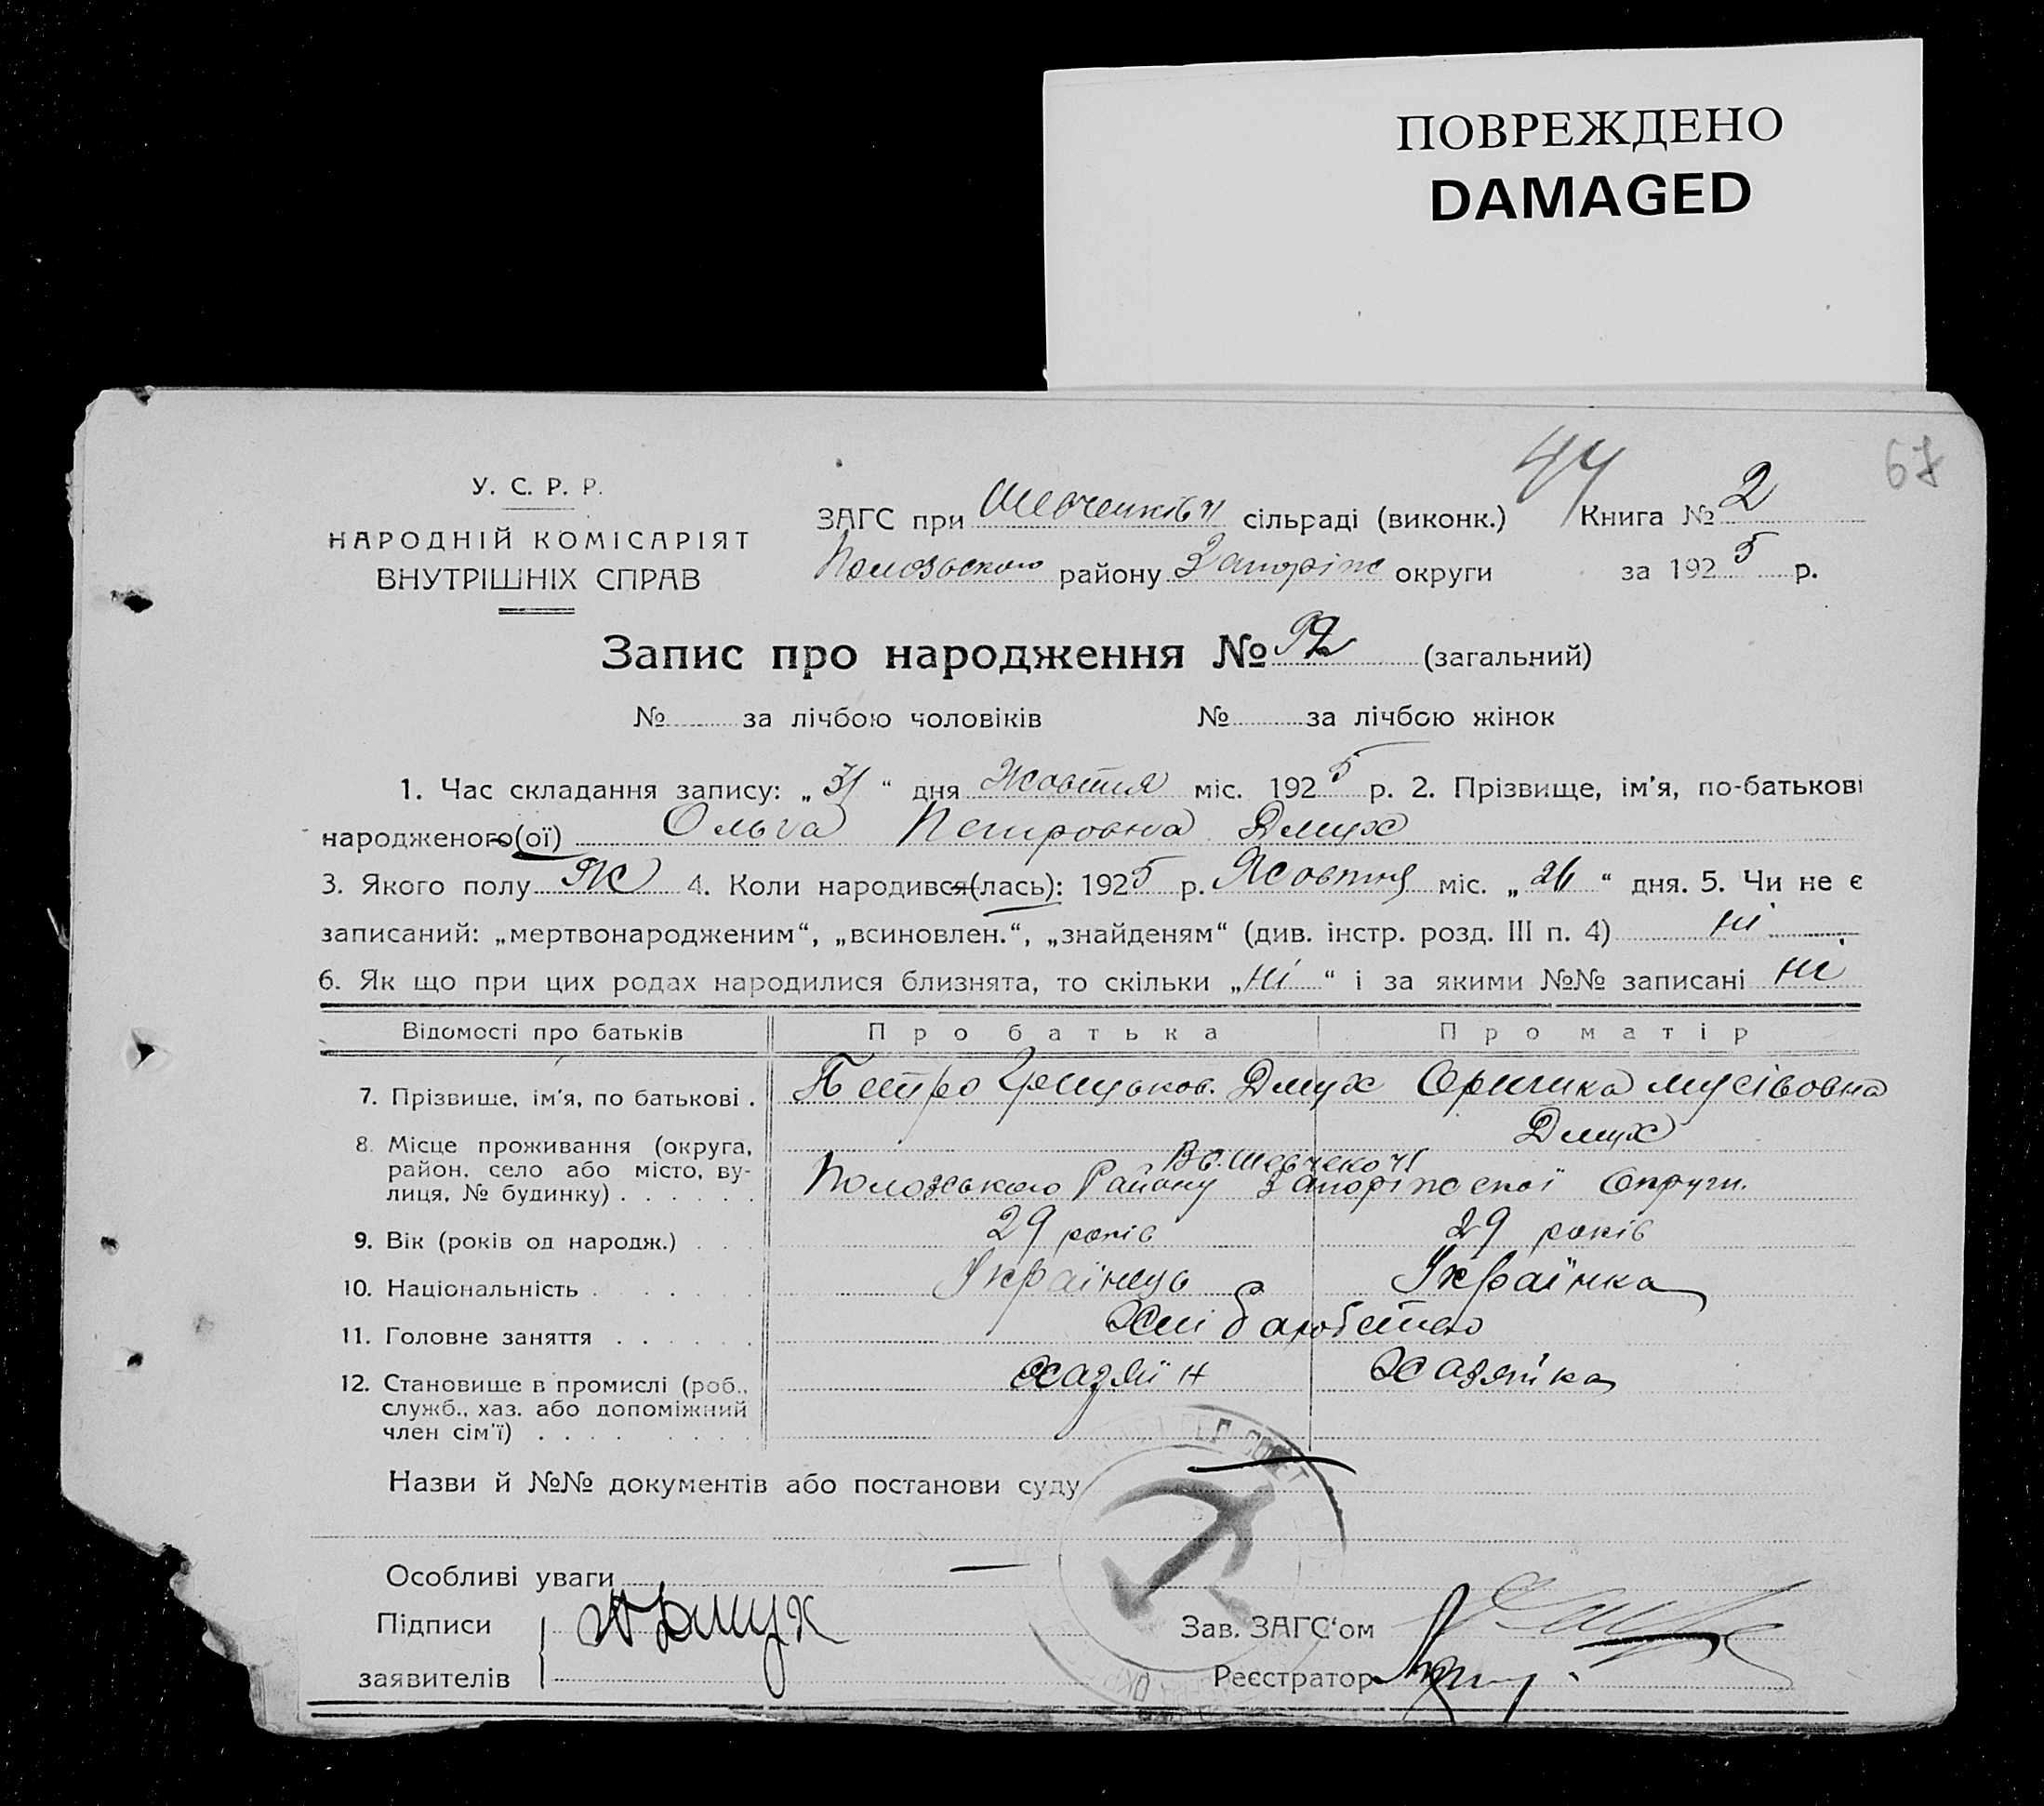 ПОВРЕЖДЕНО
DAMAGED
44
67
У. С. Р. Р.
НАРОДНІЙ КОМІСАРІЯТ
ВНУТРІШНІХ СПРАВ
ЗАГС при Шевченківн сільраді (виконк.) Книга № 2
Пологівського району Запоріж округи за 1925 р.
Запис про народження № 92 (загальний)
№ за лічбою чоловіків № за лічбою жінок
1. Час складання запису: „31“ дня Жовтня міс. 1925 р. 2. Прізвище, ім'я, по-батькові
народженого(ої) Ольга Петровна Дмух
3. Якого полу Ж 4. Коли народився(лась): 1925 р. Жовтня міс. „26“ дня. 5. Чи не є
записаний: „мертвонародженим“, „всиновлен.“, „знайденям“ (див. інстр. розд. III п. 4) ні
6. Як що при цих родах народилися близнята, то скільки „ні“ і за якими №№ записані ні
Відомості про батьків Про батька Про матір
7. Прізвище, ім'я, по батькові . Петро Грицьков. Дмух Оришка Мусівовна
Дмух
8. Місце проживання (округа,
район, село або місто, ву-
лиця, № будинку) . . . . . . Району Запоріжської Округи.
9. Вік (років од народж.) . . . 29 років 29 років
10. Національність . . . . . . . Українць Українка
11. Головне заняття . . . . . . Хліборобство
12. Становище в промислі (роб.,
служб., хаз. або допоміжний
член сім'ї) . . . . . . . . хазяїн Хазяйка
Назви й №№ документів або постанови суду
Особливі уваги —
Підписи
заявителів
Дмух
Зав. ЗАГС'ом
Реєстратор